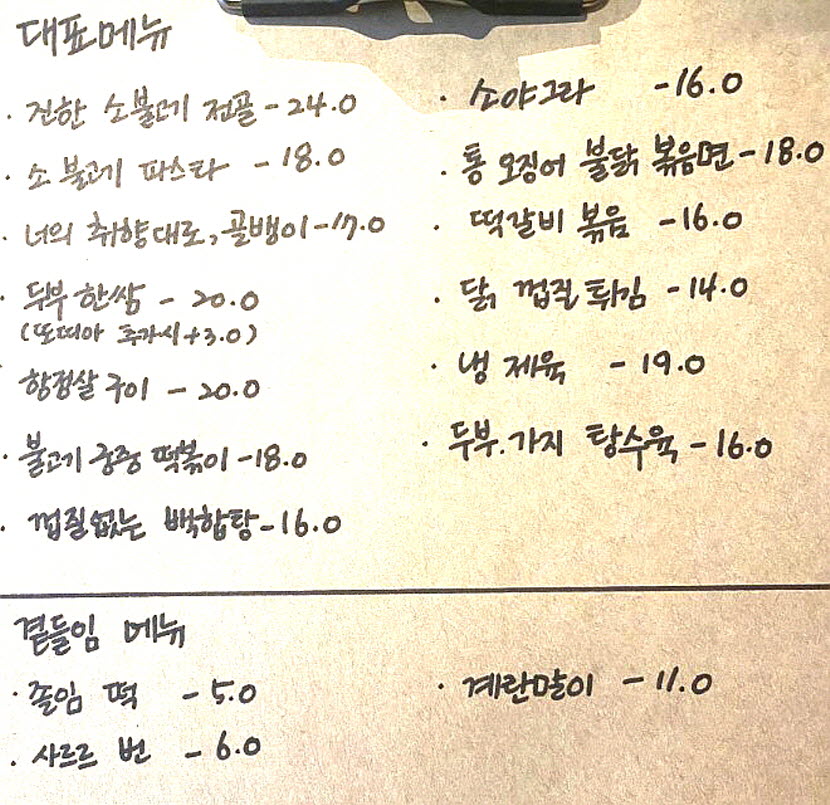 대표메뉴
· 진한 소불고기 전골 - 24.0
· 소 불고기 파스타 - 18.0
· 너의 취향대로, 골뱅이 - 17.0
· 두부 한쌈 - 20.0
(또띠아 추가시 +3.0)
항정살 구이 - 20.0
· 불고기 궁중 떡볶이 - 18.0
· 껍질없는 백합탕 - 16.0
· 소야그라 - 16.0
· 통 오징어 불닭 볶음면 - 18.0
· 떡갈비 볶음 - 16.0
· 닭 껍질 튀김 - 14.0
· 냉 제육 - 19.0
· 두부.가지 탕수육 - 16.0
곁들임 메뉴
· 졸임 떡 - 5.0
· 사르르 번 - 6.0
· 계란말이 - 11.0